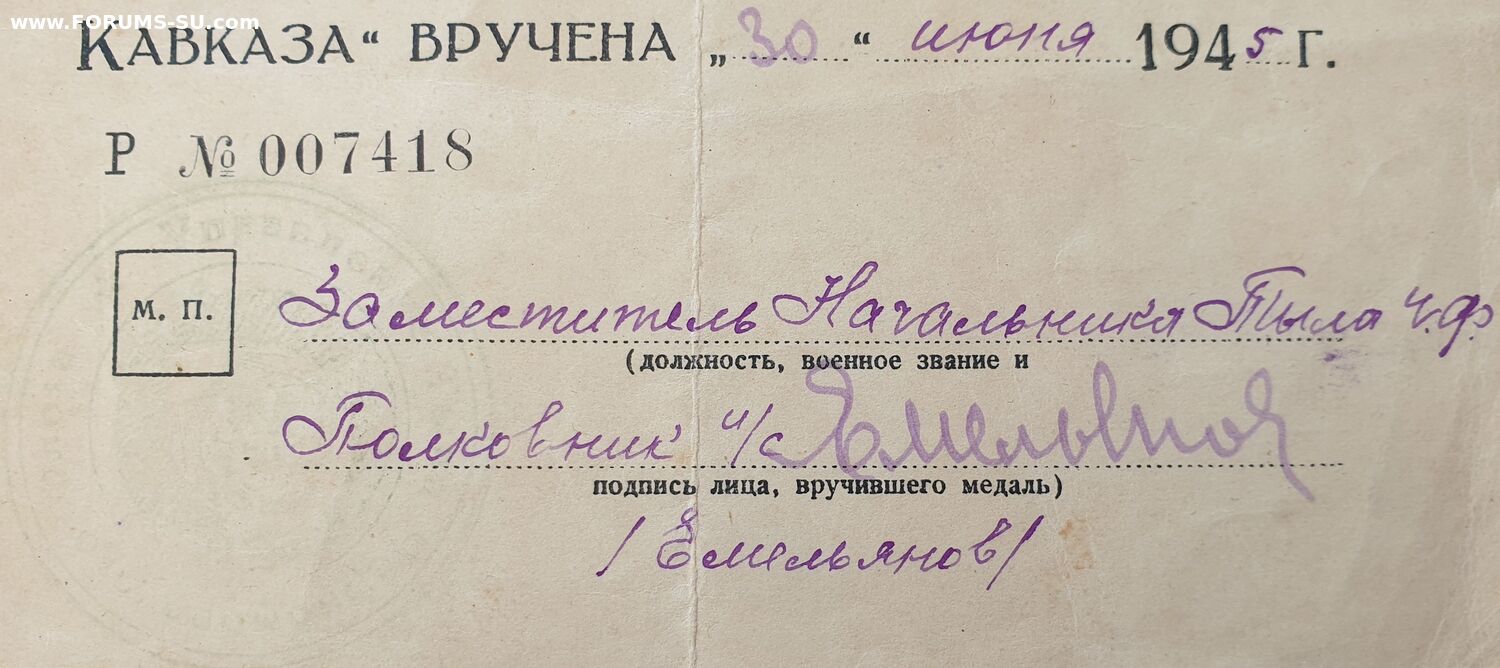 www.FORUMS-SU.com
КАВКАЗА“ ВРУЧЕНА „30“ июня 1945 г.
Р № 007418
М. П.
Заместитель Начальника Тыла Ч.Ф.
(должность, военное звание и
Полковник и/с Емельянов
подпись лица, вручившего медаль)
/Емельянов/